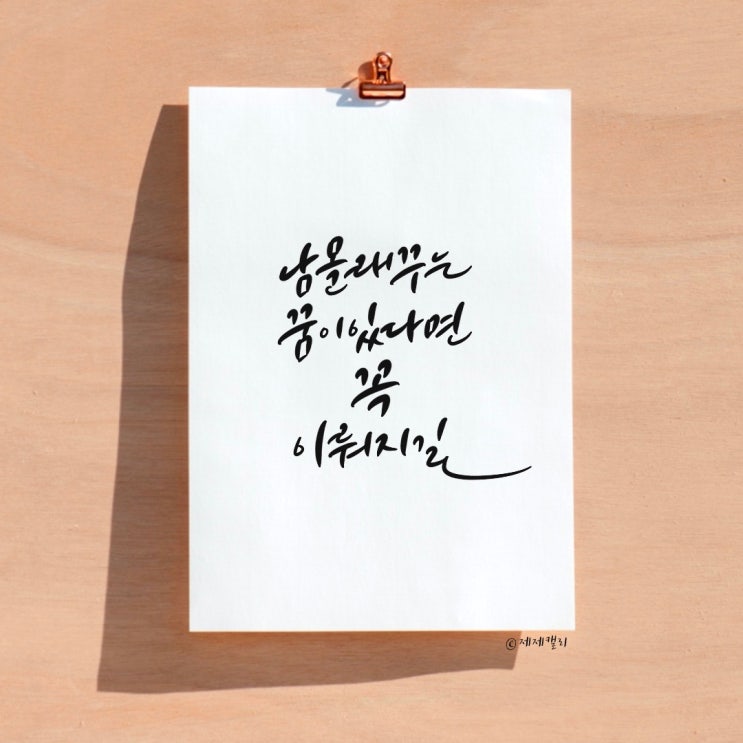 남몰래꾸는
꿈이있다면
꼭
이뤄지길
©제제캘리